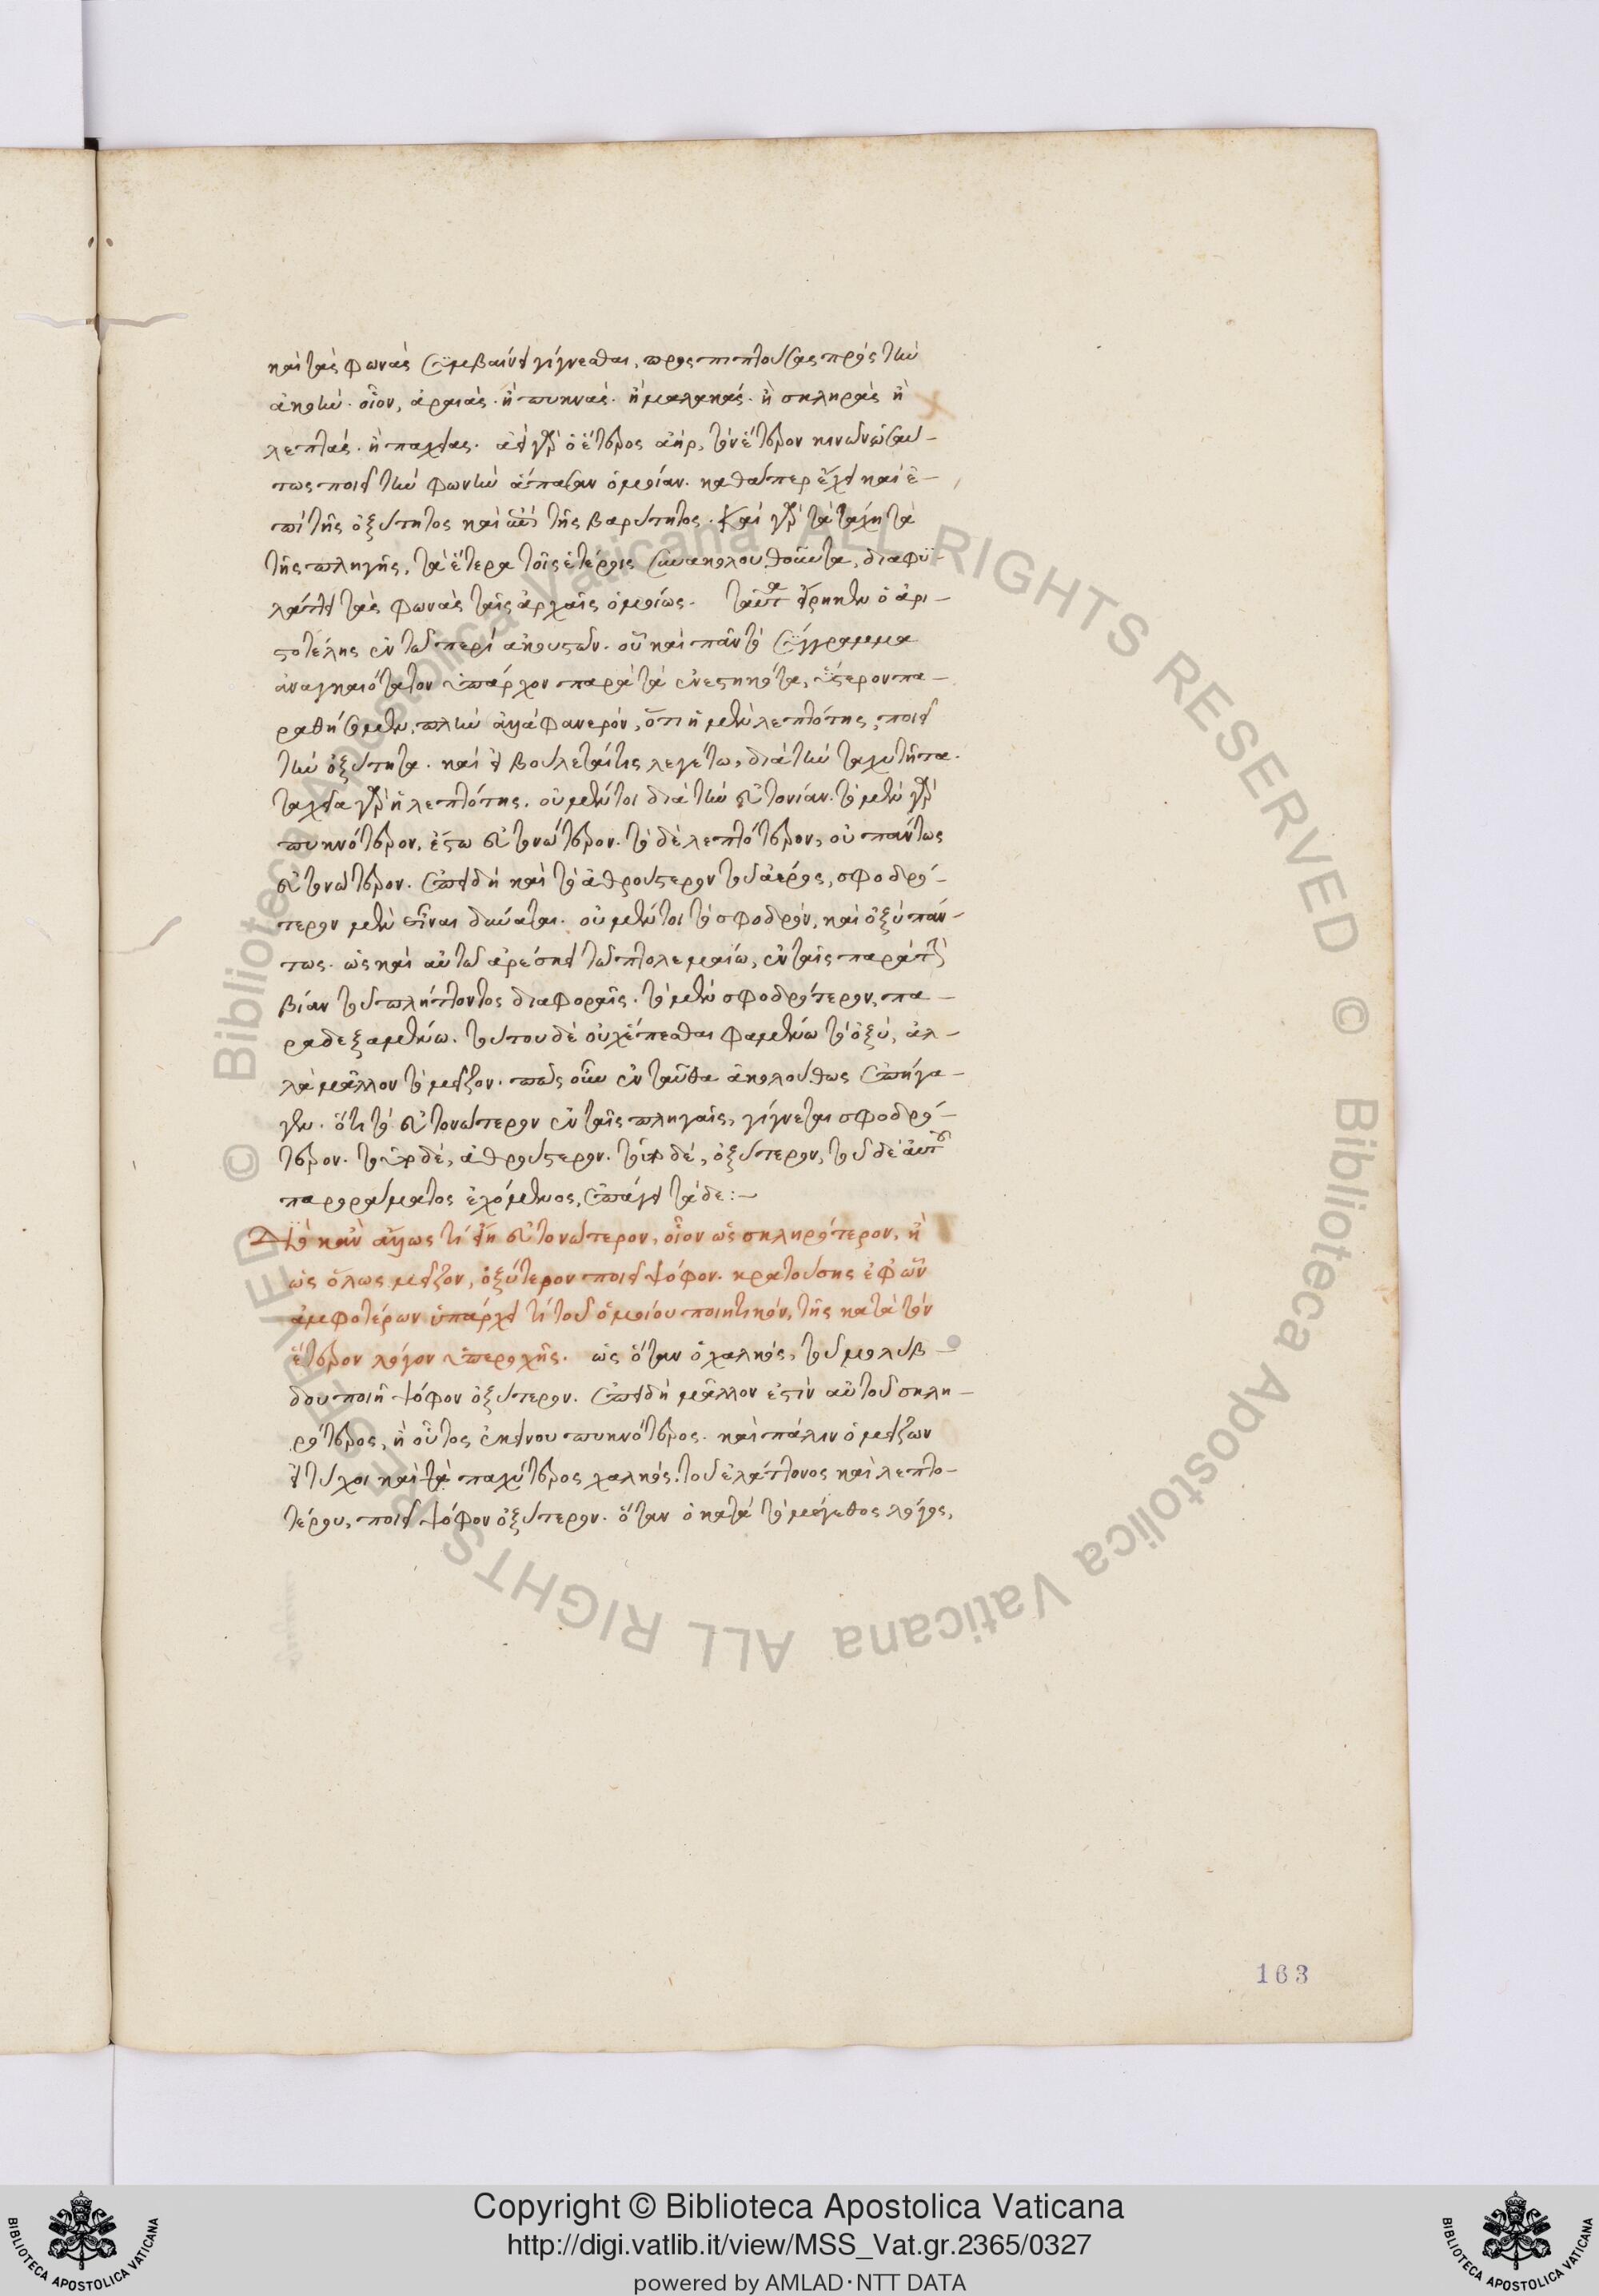 καὶ τὰς φωνὰς συμβαίνει γίγνεσθαι, προσπιπτούσας πρὸς τὴν
ἀκοὴν. οἷον, ἀραιάς. ἢ πυκνάς. ἢ μαλακάς. ἢ σκληρὰς ἢ
λεπτάς. ἢ παχείας. ἀεὶ γὰρ ὁ ἕτερος ἀὴρ, τὸν ἕτερον κινῶν ὡσαύ-
τως ποιεῖ τὴν φωνὴν ἅπασαν ὁμοίαν. καθάπερ ἔχει καὶ ἐ-
πὶ τῆς ὀξύτητος καὶ ἐπὶ τῆς βαρύτητος. Καὶ γὰρ τὰ τάχη τὰ
τῆς πληγῆς, τὰ ἕτερα τοῖς ἑτέροις συνακολουθοῦντα, διαφυ-
λάττει τὰς φωνὰς ταῖς ἀρχαῖς ὁμοίως. ταῦτα εἴρηκεν ὁ ἀρι-
στοτέλης ἐν τῷ περὶ ἀκουστῶν. οὗ καὶ πᾶν τὸ σύγγραμμα
ἀναγκαιότατον ὑπάρχον παρὰ τὰ ἐνεστηκότα, ὕστερον πα-
ραθήσομεν. πλὴν ἀλλὰ φανερόν, ὅτι ἡ μὲν λεπτότης, ποιεῖ
τὴν ὀξύτητα. καὶ εἰ βούλεταί τις λεγέτω, διὰ τὴν ταχυτῆτα.
ταχεῖα γὰρ ἡ λεπτότης. οὐ μέντοι διὰ τὴν εὐτονίαν. τὸ μὲν γὰρ
πυκνότερον, ἔστω εὐτονώτερον. τὸ δὲ λεπτότερον, οὐ πάντως
εὐτονώτερον. ἐπειδὴ καὶ τὸ ἀθρούστερον τοῦ ἀέρος, σφοδρό-
τερον μὲν εἶναι δύναται. οὐ μέντοι τὸ σφοδρόν, καὶ ὀξὺ πάν-
τως. ὡς καὶ αὐτῷ ἀρέσκει τῷ πτολεμαίῳ, ἐν ταῖς παρὰ τὴν
βίαν τοῦ πλήττοντος διαφοραῖς. τὸ μὲν σφοδρότερον, πα-
ραδεξαμένῳ. τούτου δὲ οὐχ ἕπεσθαι φαμένῳ τὸ ὀξύ, ἀλ-
λὰ μᾶλλον τὸ μεῖζον. πῶς οὖν ἐν ταῦθα ἀκολούθως ἐπήγα-
γεν. ὅτι τὸ εὐτονώτερον ἐν ταῖς πληγαῖς, γίγνεται σφοδρό-
τερον. τοῦτο δέ, ἀθρούστερον. τοῦτο δέ, ὀξύτερον, τοῦ δὲ αὐτοῦ
παροράματος ἐχόμενος, ἐπάγει τάδε:—
Διὸ κἂν ἄλλως τί εἴη εὐτονώτερον, οἷον ὡς σκληρότερον, ἢ
ὡς ὅλως μεῖζον, ὀξύτερον ποιεῖ ψόφον. κρατούσης ἐφ᾽ ὧν
ἀμφοτέρων ὑπάρχει τί τοῦ ὁμοίου ποιητικόν, τῆς κατὰ τὸν
ἕτερον λόγον ὑπεροχῆς. ὡς ὅταν ὁ χαλκός, τοῦ μολύβ-
δου ποιῇ ψόφον ὀξύτερον. ἐπειδὴ μᾶλλον ἐστὶν αὐτοῦ σκλη-
ρότερος, ἢ οὗτος ἐκείνου πυκνότερος. καὶ πάλιν ὁ μείζων
εἰ τύχοι καὶ τὰ παχύτερος χαλκός. τοῦ ἐλάττονος καὶ λεπτο-
τέρου, ποιεῖ ψόφον ὀξύτερον. ὅταν ὁ κατὰ τὸ μέγεθος λόγος,
163
© Biblioteca Apostolica Vaticana ALL RIGHTS RESERVED © Biblioteca Apostolica Vaticana ALL RIGHTS RESERVED
Copyright © Biblioteca Apostolica Vaticana
http://digi.vatlib.it/view/MSS_Vat.gr.2365/0327
powered by AMLAD·NTT DATA
BIBLIOTECA APOSTOLICA VATICANA
BIBLIOTECA APOSTOLICA VATICANA